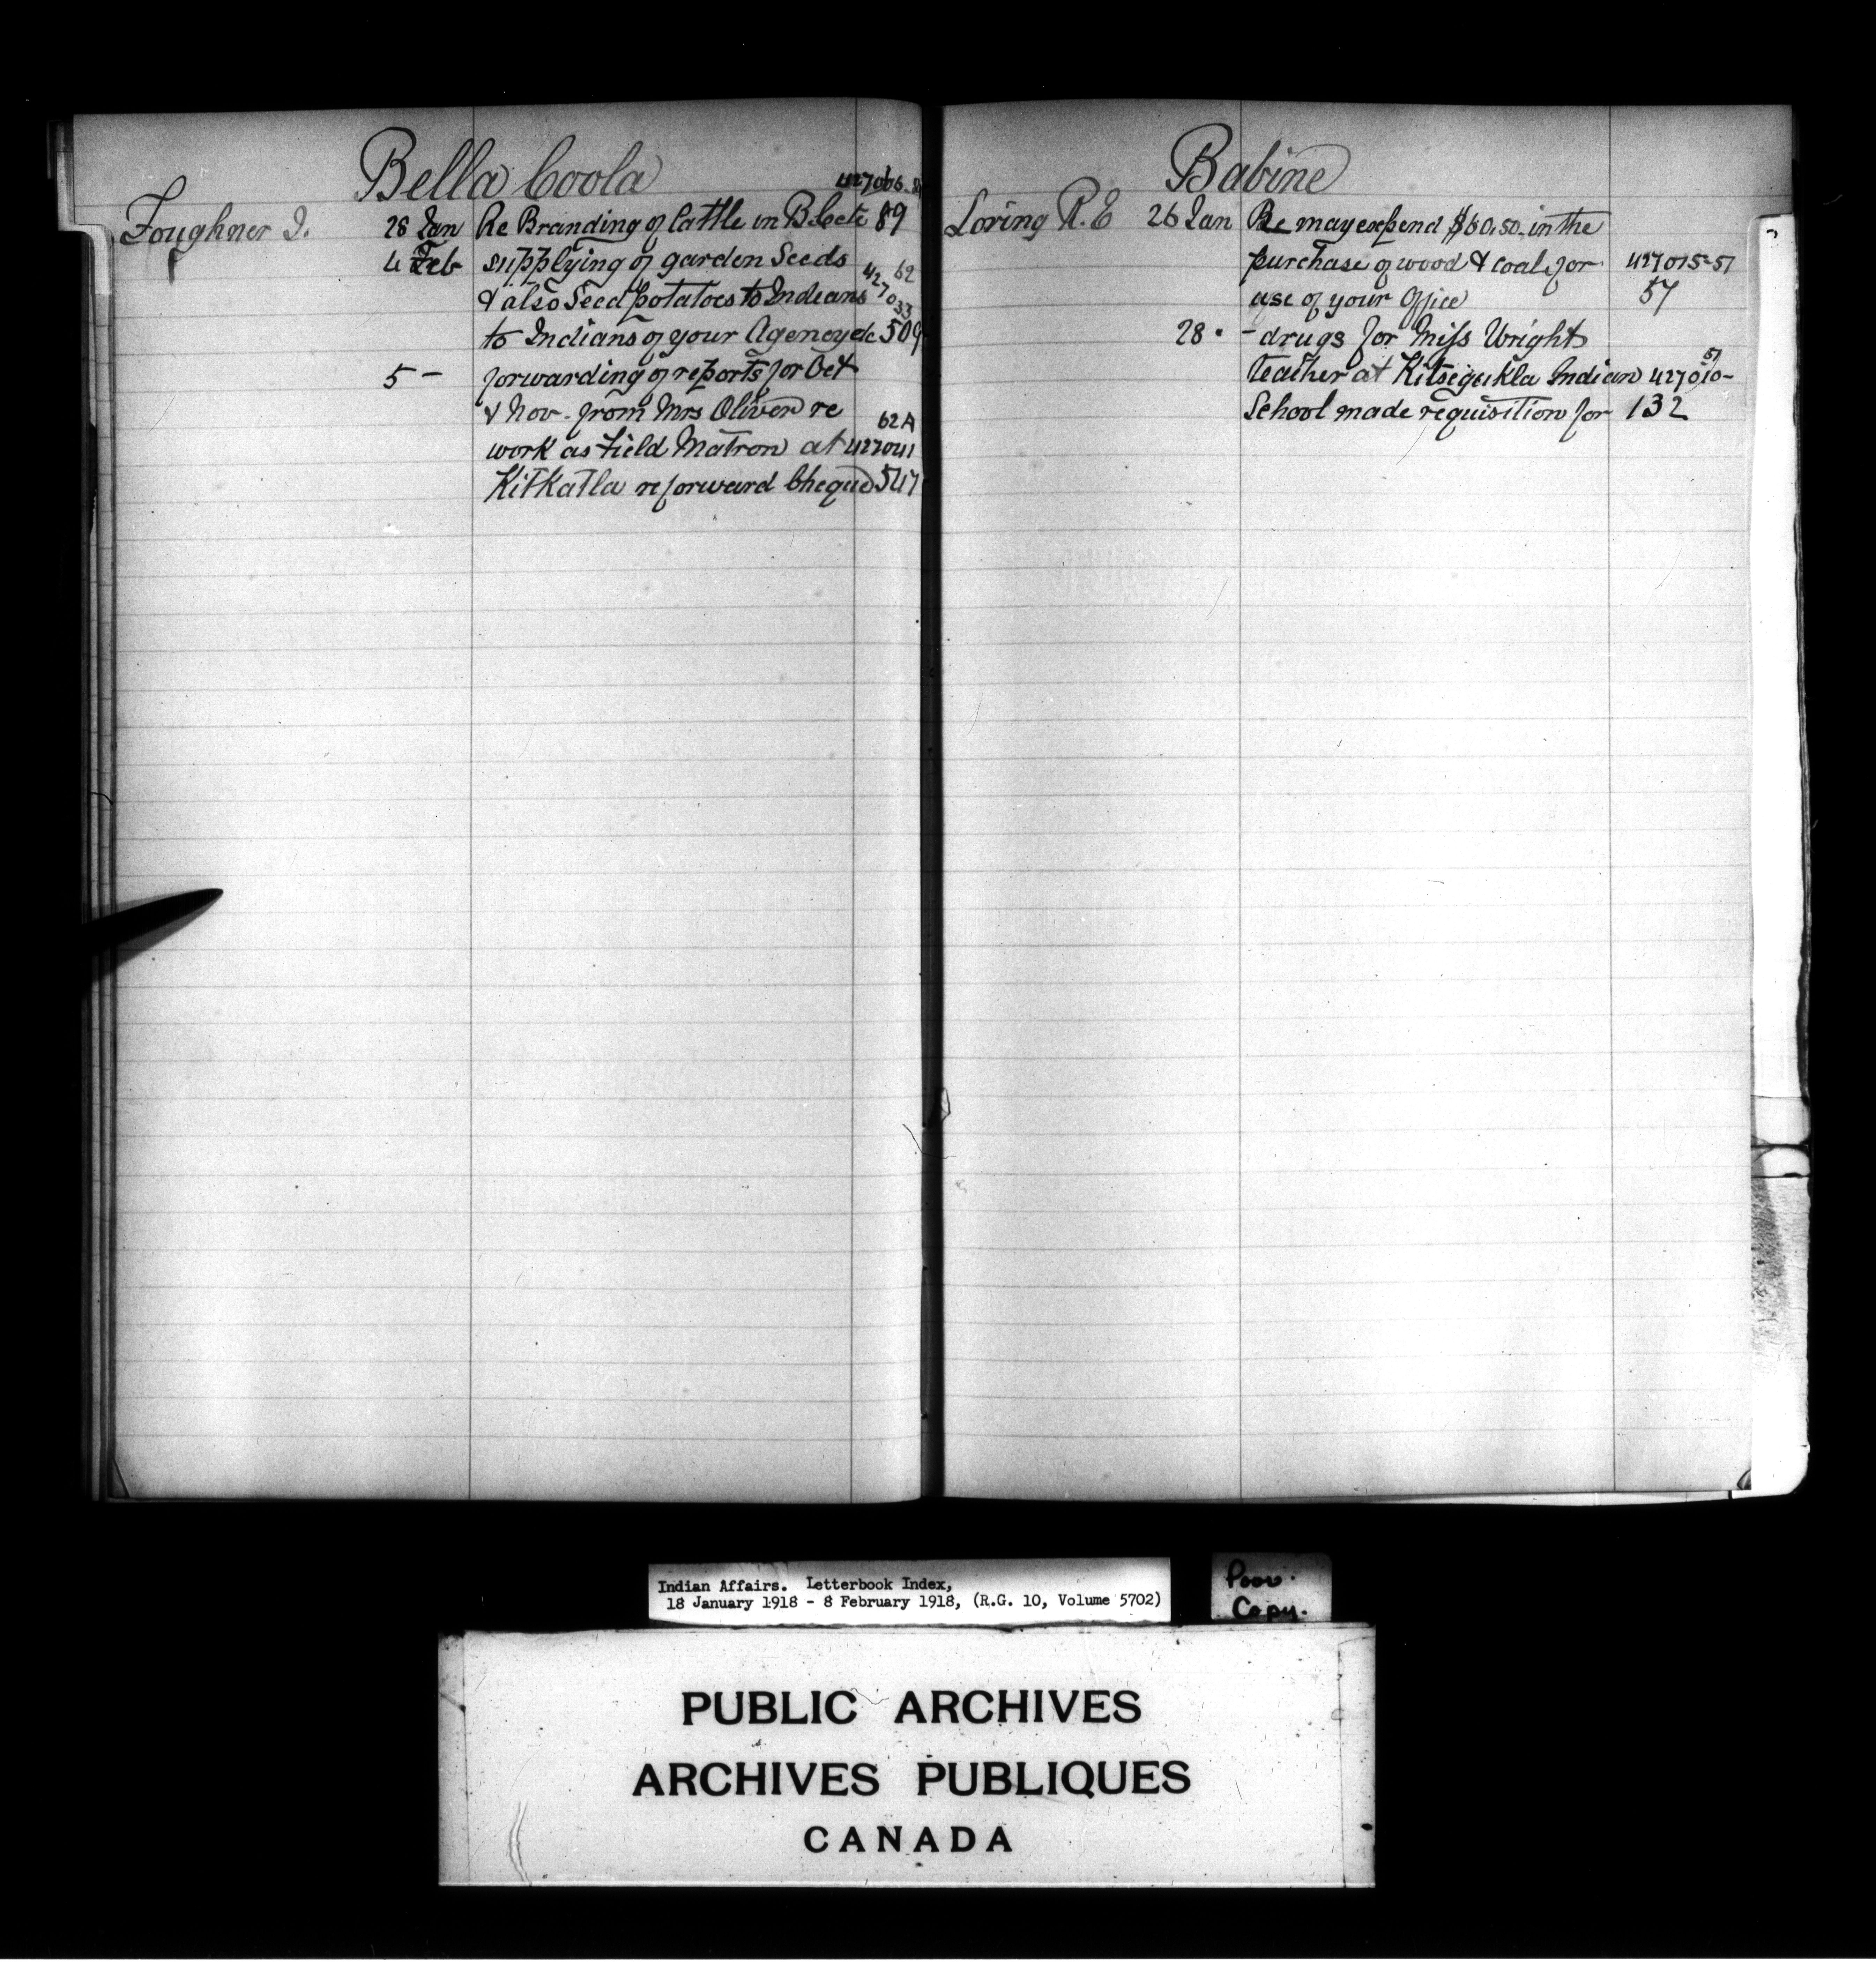 Bella Coola
Foughner I. 28 Jan Re Branding of Cattle in B.C etc 89
4 Feb supplying of garden Seeds 62
& also Seed potatoes to Indians 427033
to Indians of your Agency etc 509
5 – forwarding of reports for Oct
& Nov. from Mrs Oliver re 62A
work as Field Matron at 427041
Kitkatla re forward Cheque 547
Babine
Loring R. E 26 Jan Re may expend $60.50 in the
purchase of wood & coal for 427015-51
use of your Office 57
28 " – drugs for Miss Wright
teacher at Kitsegukla Indian 427010-51
School made requisition for 132
Indian Affairs. Letterbook Index,
18 January 1918 - 8 February 1918, (R.G. 10, Volume 5702)
Poor.
Copy.
PUBLIC ARCHIVES
ARCHIVES PUBLIQUES
CANADA